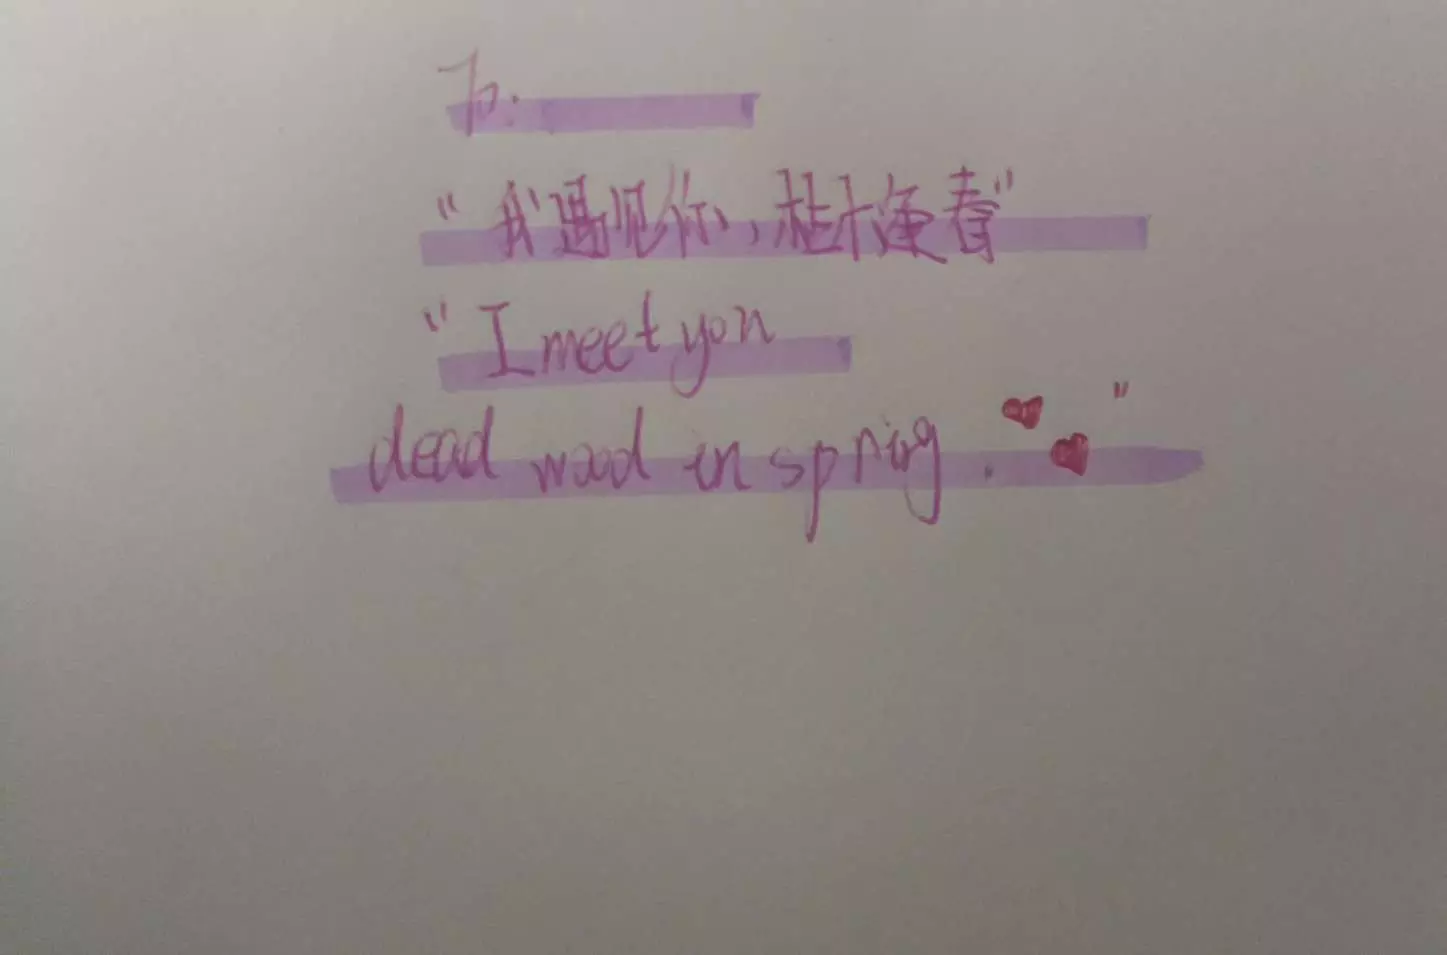 To:
“我遇见你，枯木逢春”
“I meet you
dead wood in spring.”